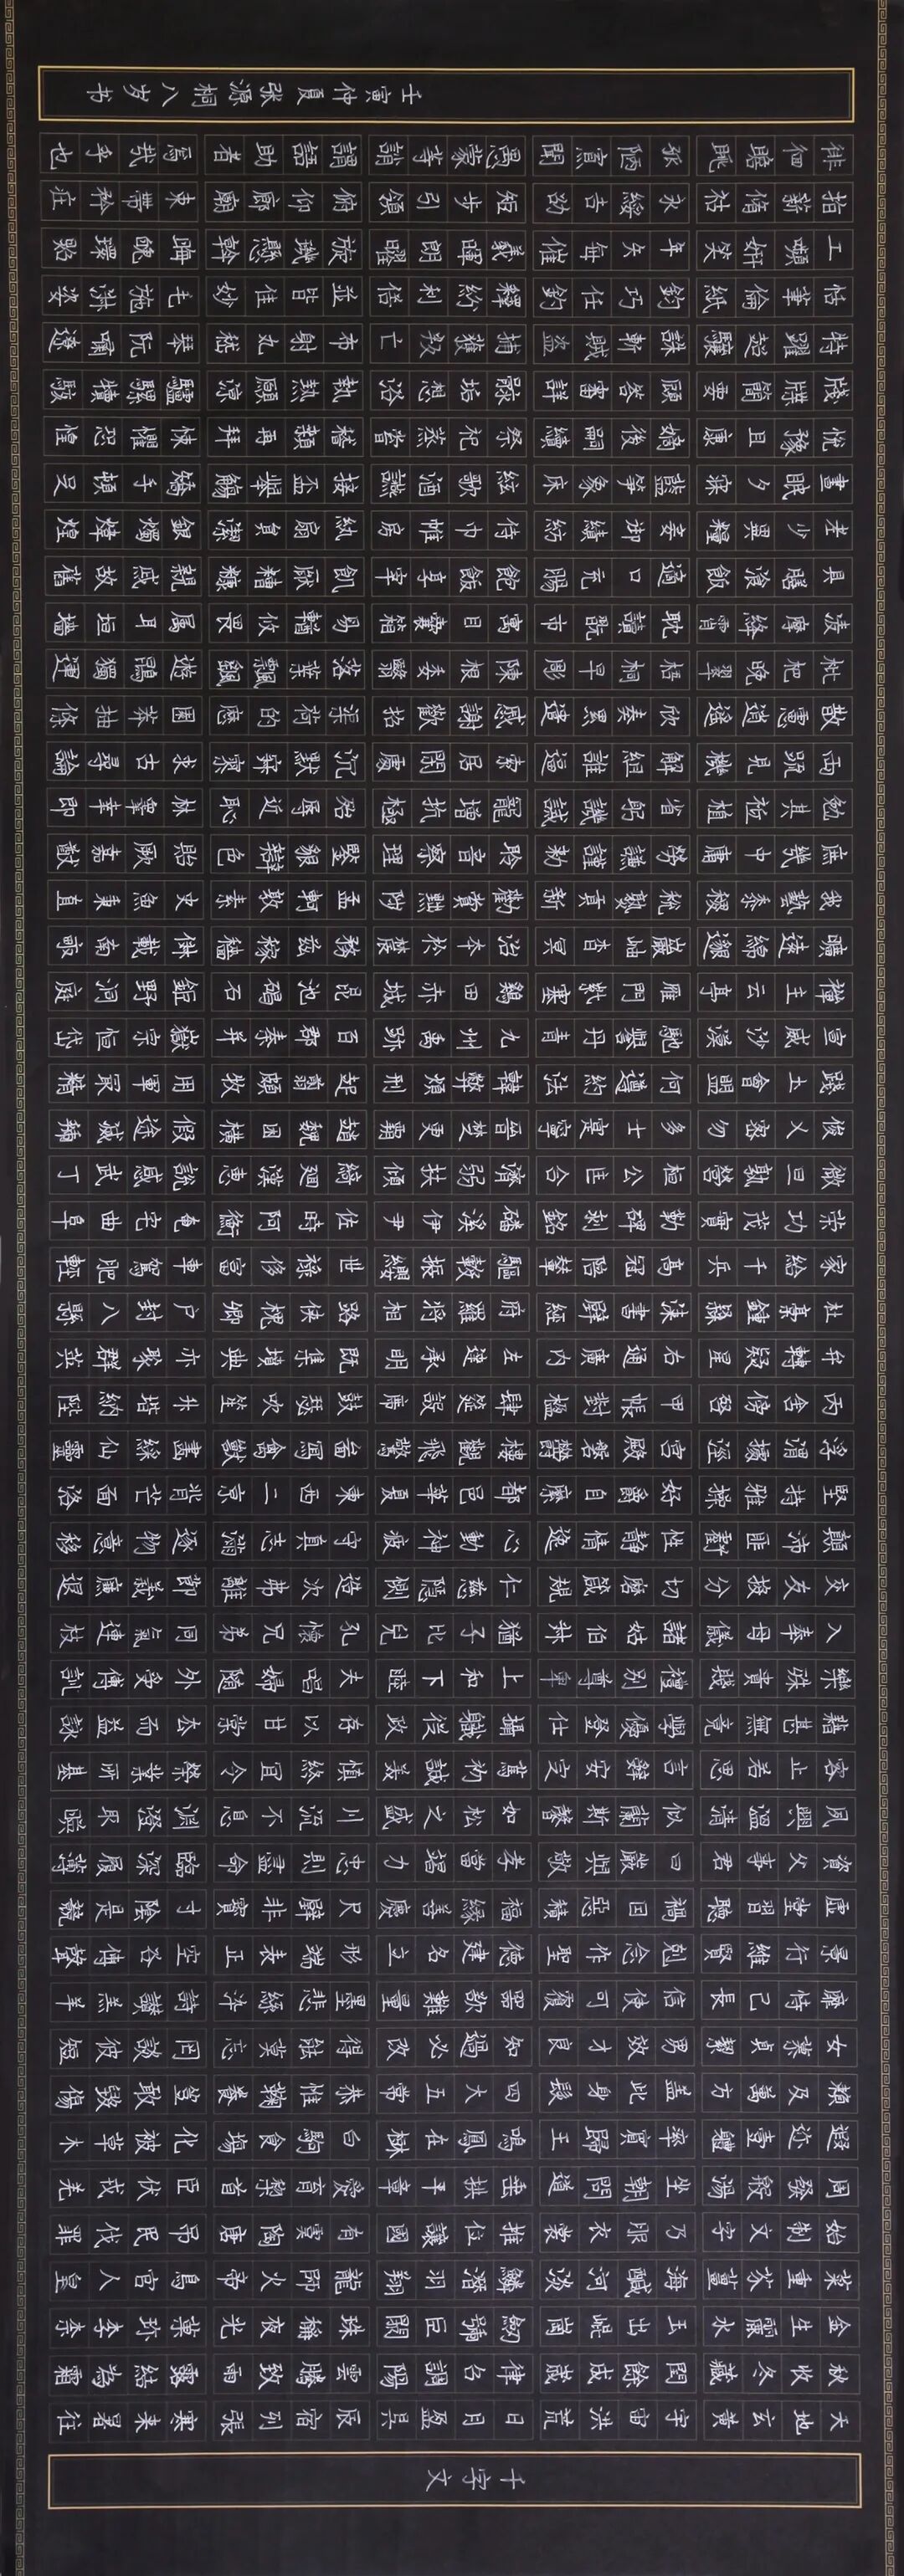 千字文
天地玄黃宇宙洪荒日月盈昃辰宿列張寒來暑往
秋收冬藏閏餘成歲律召調陽雲騰致雨露結為霜
金生麗水玉出崐崗劍號巨闕珠稱夜光菓珍李柰
菜重芥薑海鹹河淡鱗潛羽翔龍師火帝鳥官人皇
始制文字乃服衣裳推位讓國有虞陶唐弔民伐罪
周發殷湯坐朝問道垂拱平章愛育黎首臣伏戎羌
遐迩壹體率賓歸王鳴鳳在樹白駒食場化被草木
賴及萬方盖此身髮四大五常恭惟鞠養豈敢毀傷
女慕貞絜男效才良知過必改得能莫忘罔談彼短
靡恃己長信使可覆器欲難量墨悲絲淬詩讚羔羊
景行維賢剋念作聖德建名立形端表正空谷傳聲
虛堂習聽禍因惡積福緣善慶尺璧非寶寸陰是競
資父事君曰嚴與敬孝當竭力忠則盡命臨深履薄
夙興溫凊似蘭斯馨如松之盛川流不息淵澄取映
容止若思言辭安定篤初誠美慎終宜令榮業所基
藉甚無竟學優登仕攝職從政存以甘棠去而益詠
樂殊貴賤禮別尊卑上和下睦夫唱婦隨外受傅訓
入奉母儀諸姑伯叔猶子比兒孔懷兄弟同氣連枝
交友投分切磨箴規仁慈隱惻造次弗離節義廉退
顛沛匪虧性静情逸心動神疲守真志滿逐物意移
堅持雅操好爵自縻都邑華夏東西二京背芒面洛
浮渭據涇宮殿磐鬱樓觀飛驚畫寫禽獸畫綵仙靈
丙舍傍啓甲帳對楹肆筵設席鼓瑟吹笙升階納陛
弁轉疑星右通廣內左達承明既集墳典亦聚群英
杜稾鍾隸漆書壁經府羅將相路俠槐卿戶封八縣
家給千兵高冠陪輦驅轂振纓世祿侈富車駕肥輕
策功茂實勒碑刻銘磻溪伊尹佐時阿衡奄宅曲阜
微旦孰營桓公匡合濟弱扶傾綺迴漢惠說感武丁
俊乂密勿多士寔寧晉楚更霸趙魏困橫假途滅虢
踐土會盟何遵約法韓弊煩刑起翦頗牧用軍冣精
宣威沙漠馳譽丹青九州禹跡百郡秦并嶽宗恒岱
禪主云亭雁門紫塞鷄田赤城昆池碣石鉅野洞庭
曠遠綿邈巖岫杳冥治本於農務茲稼穡俶載南畝
我藝黍稷稅熟貢新勸賞黜陟孟軻敦素史魚秉直
庶幾中庸勞謙謹勅聆音察理鑒貌辯色貽厥嘉猷
勉其祗植省躬譏誡寵增抗極殆辱近恥林皋幸即
兩疏見機解組誰逼索居閒處沉默寂寥求古尋論
散慮逍遙欣奏累遣慼謝歡招渠荷的應園莽抽條
枇杷晚翠梧桐早彫陳根委翳落葉飄颻遊鵾獨運
凌摩絳霄耽讀翫市寓目囊箱易輶攸畏属耳垣牆
具膳飡飯適口充腸飽飫享宰飢厭糟糠親戚故舊
老少異糧妾御績紡侍巾帷房紈扇員潔銀燭煒煌
晝眠夕寐藍筍象床絃歌酒讌接盃舉觴矯手頓足
悅豫且康嫡後嗣續祭祀蒸嘗稽顙再拜悚懼恐惶
牋牒簡要顧答審詳骸垢想浴執熱願涼驢騾犢特
駭躍超驤誅斬賊盜捕獲叛亡布射丸嵇琴阮嘯遼
恬筆倫紙鈞巧任釣釋紛利俗並皆佳妙毛施淑姿
工嚬妍笑年矢每催羲暉朗曜旋璣懸斡晦魄環照
指薪脩祜永綏吉劭矩步引領俯仰廊廟束帶矜庄
徘徊瞻眺孤陋寡聞愚蒙等誚謂語助者焉哉乎也
壬寅仲夏张源桐八岁书